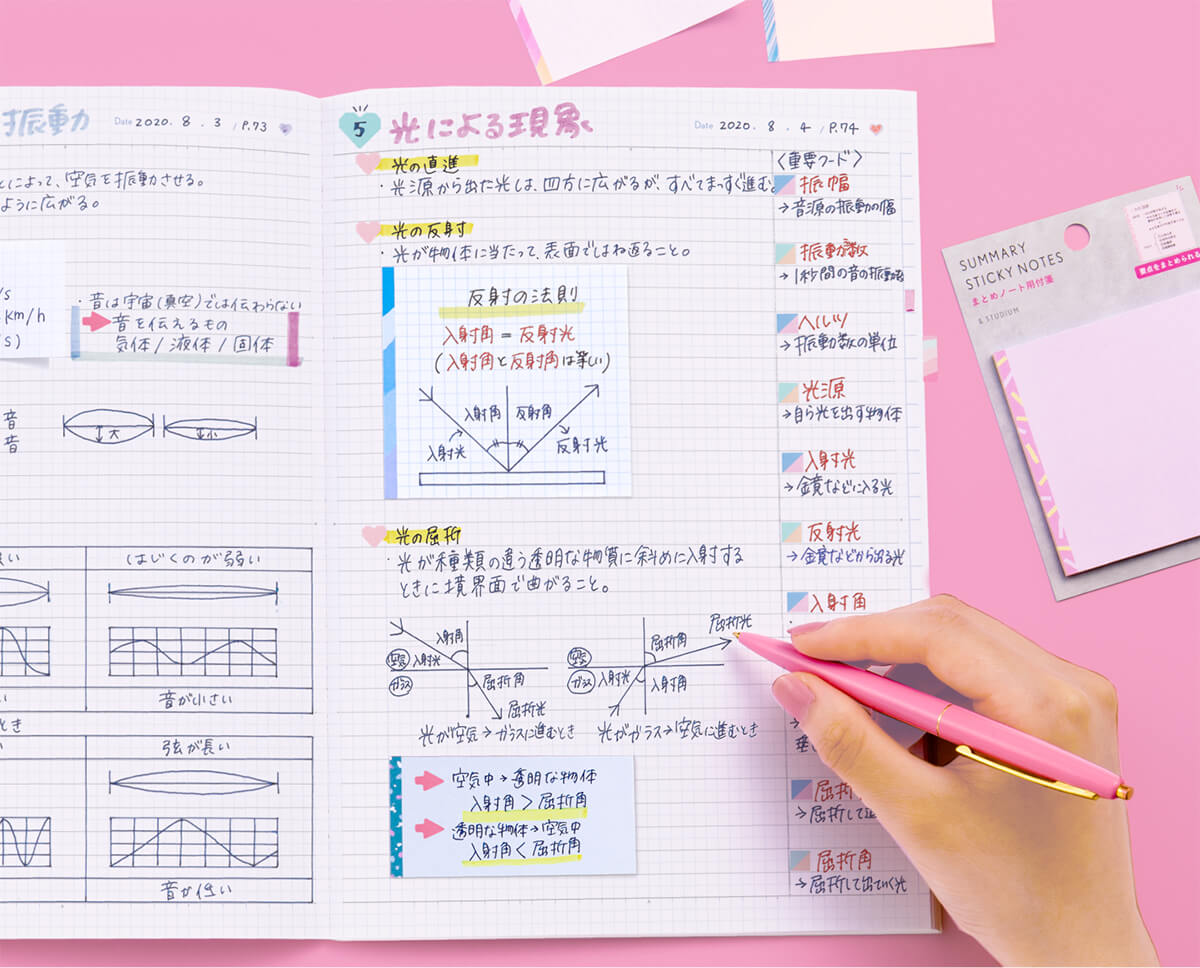 振動
Date 2020. 8. 3 / P.73
によって、空気を振動させる。
ように広がる。
・音は宇宙(真空)では伝わらない
音を伝えるもの
気体/液体/固体
/s
km/h
/s)
音
音
大
小
はじくのが弱い
音が小さい
とき
弦が長い
音が低い
5 光による現象
Date 2020. 8. 4 / P.74
光の直進
・光源から出た光は、四方に広がるが すべてまっすぐ進む。
光の反射
・光が物体に当たって、表面ではね返ること。
反射の法則
入射角=反射光
(入射角と反射角は等しい)
入射角 反射角
入射光 反射光
光の屈折
・光が種類の違う透明な物質に斜めに入射する
ときに境界面で曲がること。
入射角
空気 入射光
ガラス 屈折角
屈折光
光が空気→ガラスに進むとき
屈折光
屈折角
空気
ガラス 入射光 入射角
光がガラス→空気に進むとき
空気中→透明な物体
入射角>屈折角
透明な物体→空気中
入射角<屈折角
〈重要フード〉
振幅
→音源の振動の幅
振動数
→1秒間の音の振動数
ヘルツ
→振動数の単位
光源
→自ら光を出す物体
入射光
→鏡などに入る光
反射光
→鏡などから出る光
入射角
屈折
→屈折して
屈折角
→屈折して出ていく光
SUMMARY
STICKY NOTES
まとめノート用付箋
& STUDIUM
要点をまとめられる